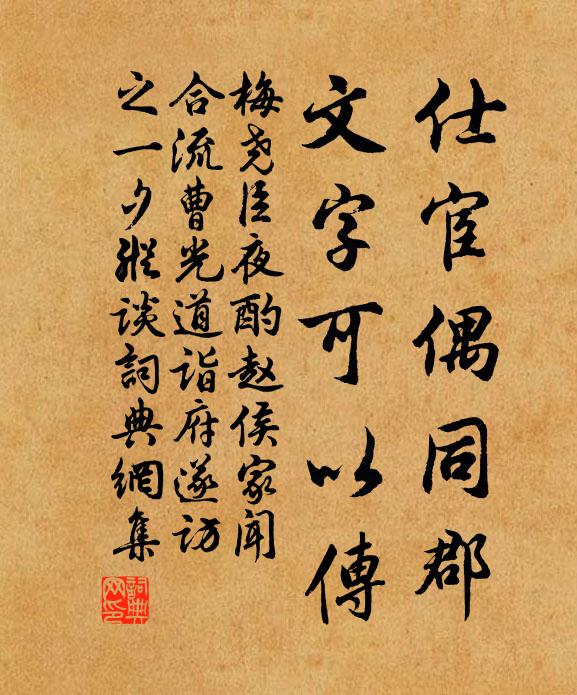 仕宦偶同郡
文字可以傳
梅堯臣夜酌赵侯家闻
合流曹光道诣府遂访
之一夕縱談詞典網集
詞典网印